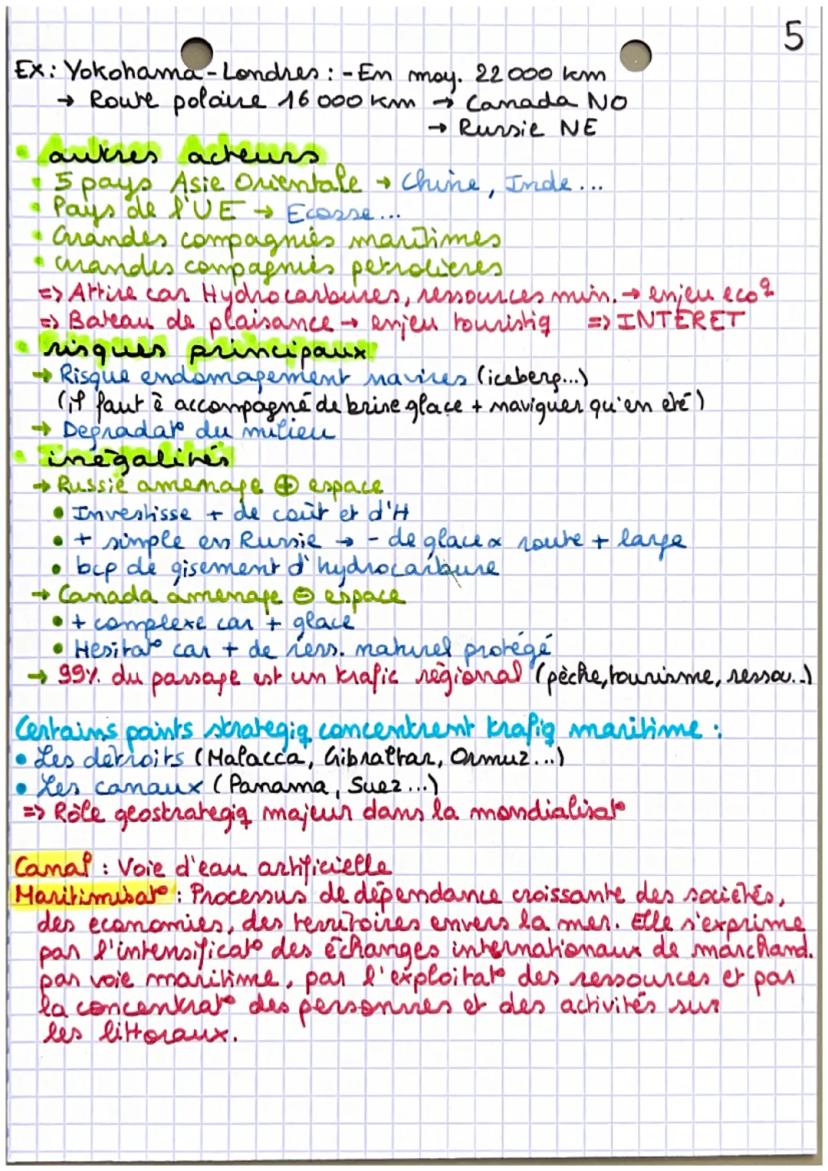 5
Ex: Yokohama - Londres : - En moy. 22 000 km
→ Route polaire 16 000 km → Canada NO
→ Russie NE
• autres acteurs
• 5 pays Asie Orientale → Chine, Inde...
• Pays de l'UE → Ecosse...
• Grandes compagnies maritimes
• Grandes compagnies petrolieres
=> Attire car Hydrocarbures, ressources min. → enjeu ecoq
=> Bateau de plaisance → enjeu touristiq => INTERET
• risques principaux
→ Risque endomagement navires (iceberg...)
(il faut ê accompagné de brise glace + naviguer qu'en eté)
→ Degradat° du milieu
• inégalités
→ Russie amenage ⊕ espace
• Investisse + de coût et d'H
• + simple en Russie → - de glace α route + large
• bcp de gisement d'hydrocarbure
→ Canada amenage ⊖ espace
• + complexe car + glace
• Hesitat° car + de ress. naturel protégé
→ 99% du passage est un trafic régional (pèche, tourisme, ressou..)
Certains points strategiq concentrent trafiq maritime :
• Les detroits (Malacca, Gibraltar, Ormuz...)
• Les canaux (Panama, Suez...)
=> Rôle geostrategiq majeur dans la mondialisat°
Canal : Voie d'eau artificielle
Maritimisat° : Processus de dépendance croissante des sociétés,
des economies, des territoires envers la mer. Elle s'exprime
par l'intensificat° des échanges internationaux de marchand.
par voie maritime, par l'exploitat° des ressources et par
la concentrat° des personnes et des activités sur
les littoraux.